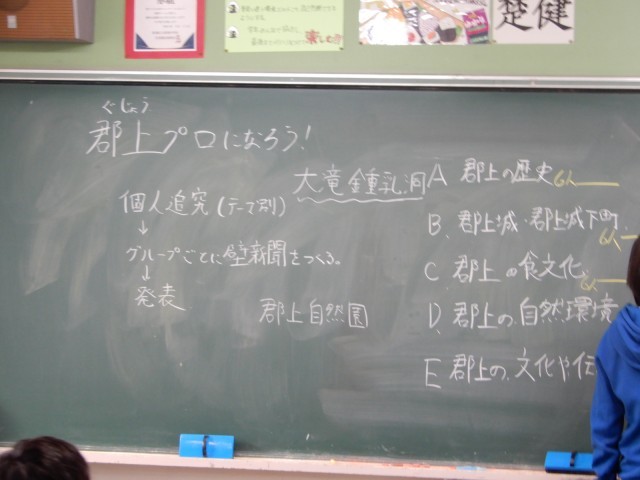 ぐじょう
郡上プロになろう!
大竜鍾乳洞
個人追究(テーマ別)
↓
グループごとに壁新聞をつくる。
↓
発表
郡上自然園
A 郡上の歴史 6人
B、郡上城・郡上城下町、6人
C、郡上の食文化、6人
D、郡上の自然環境
E 郡上の、文化や伝
楽しむ
健
楚